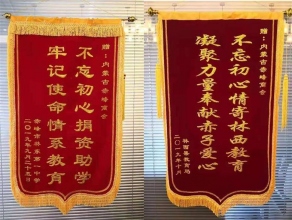 赠：内蒙古赤峰商会
不忘初心捐资助学
牢记使命情系教育
赤峰市林东第一中学
二〇一九年九月二十日
赠：内蒙古赤峰商会
不忘初心情寄林西教育
凝聚力量奉献赤子爱心
林西县教育局
二〇一九年十月